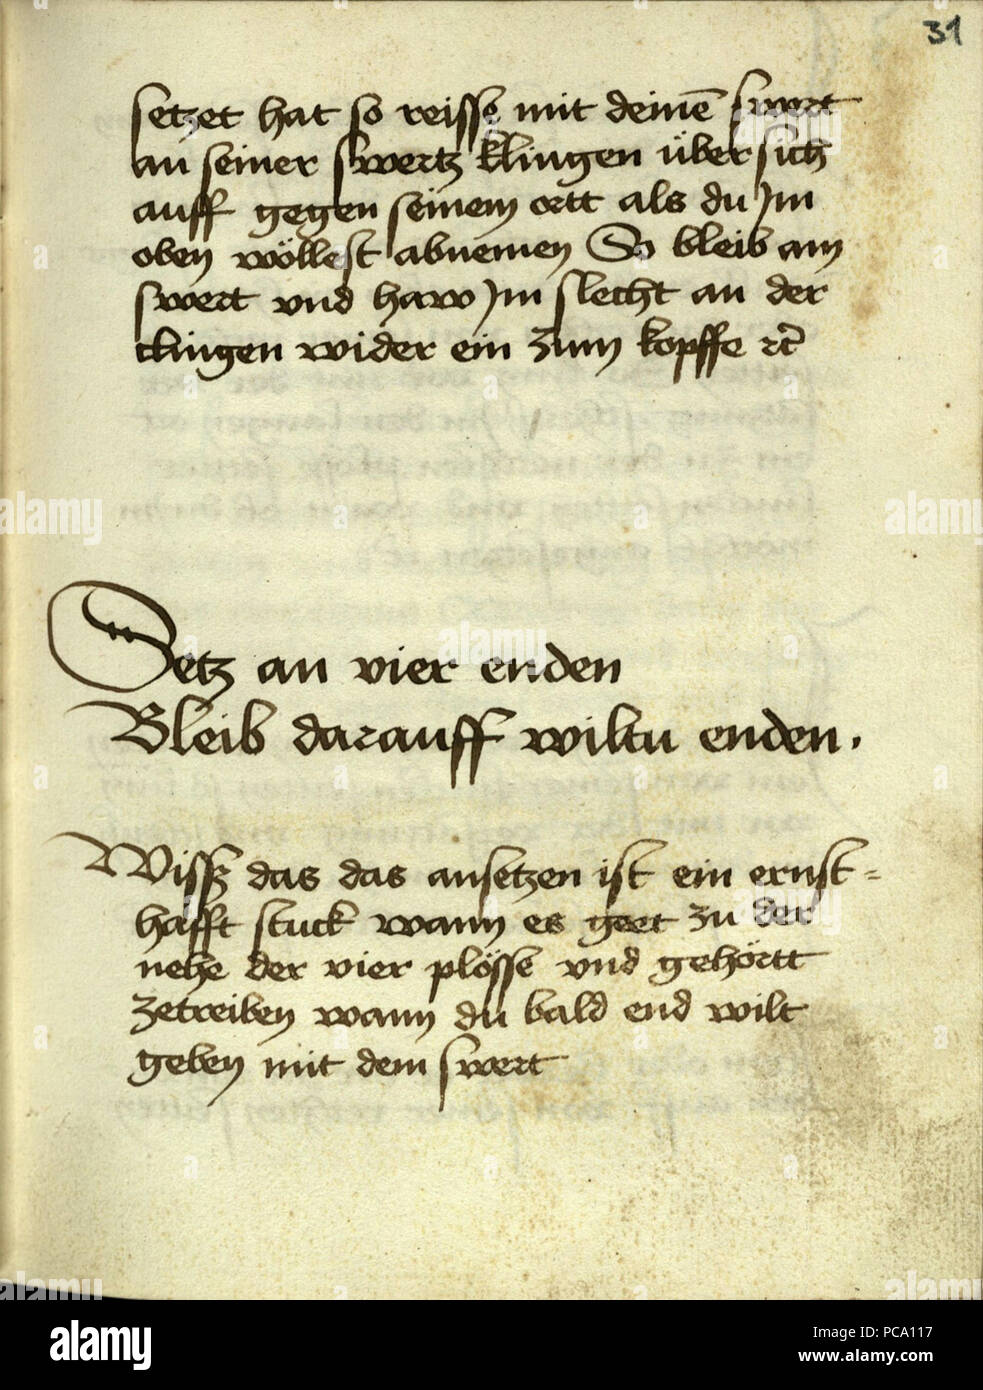 31
setzet hat so reisse mit deinē swert
an seiner swertz klingen über sich
auff gegen seinem ortt als du Jm
oben wöllest abnemen So bleib am
swert vnd haw Jm slecht an der
clingen wider ein zum kopffe rc̄
Setz an vier enden
Bleib darauff wiltu enden.
Wissz das das ansetzen ist ein ernst=
hafft stuck wann es geet zu der
nehe der vier plösse vnd gehörtt
zetreiben wann du bald end wilt
geben mit dem swert
alamy
Image ID: PCA117
www.alamy.com